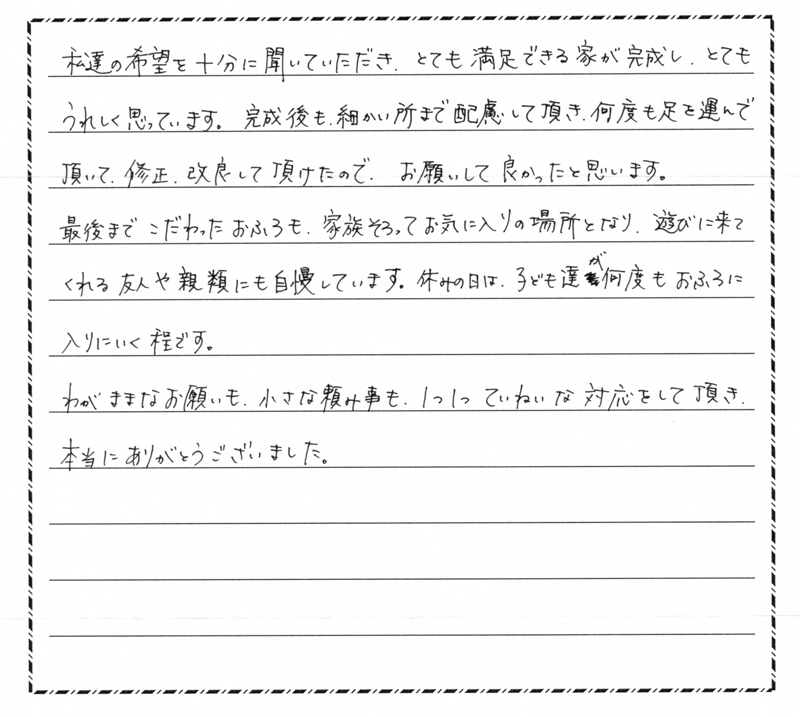 私達の希望を十分に聞いていただき、とても満足できる家が完成し、とても
うれしく思っています。完成後も、細かい所まで配慮して頂き、何度も足を運んで
頂いて、修正、改良して頂けたので、お願いして良かったと思います。
最後までこだわったおふろも、家族そろってお気に入りの場所となり、遊びに来て
くれる友人や親類にも自慢しています。休みの日は、子ども達が何度もおふろに
入りにいく程です。
わがままなお願いも、小さな頼み事も、1つ1つていねいな対応をして頂き、
本当にありがとうございました。